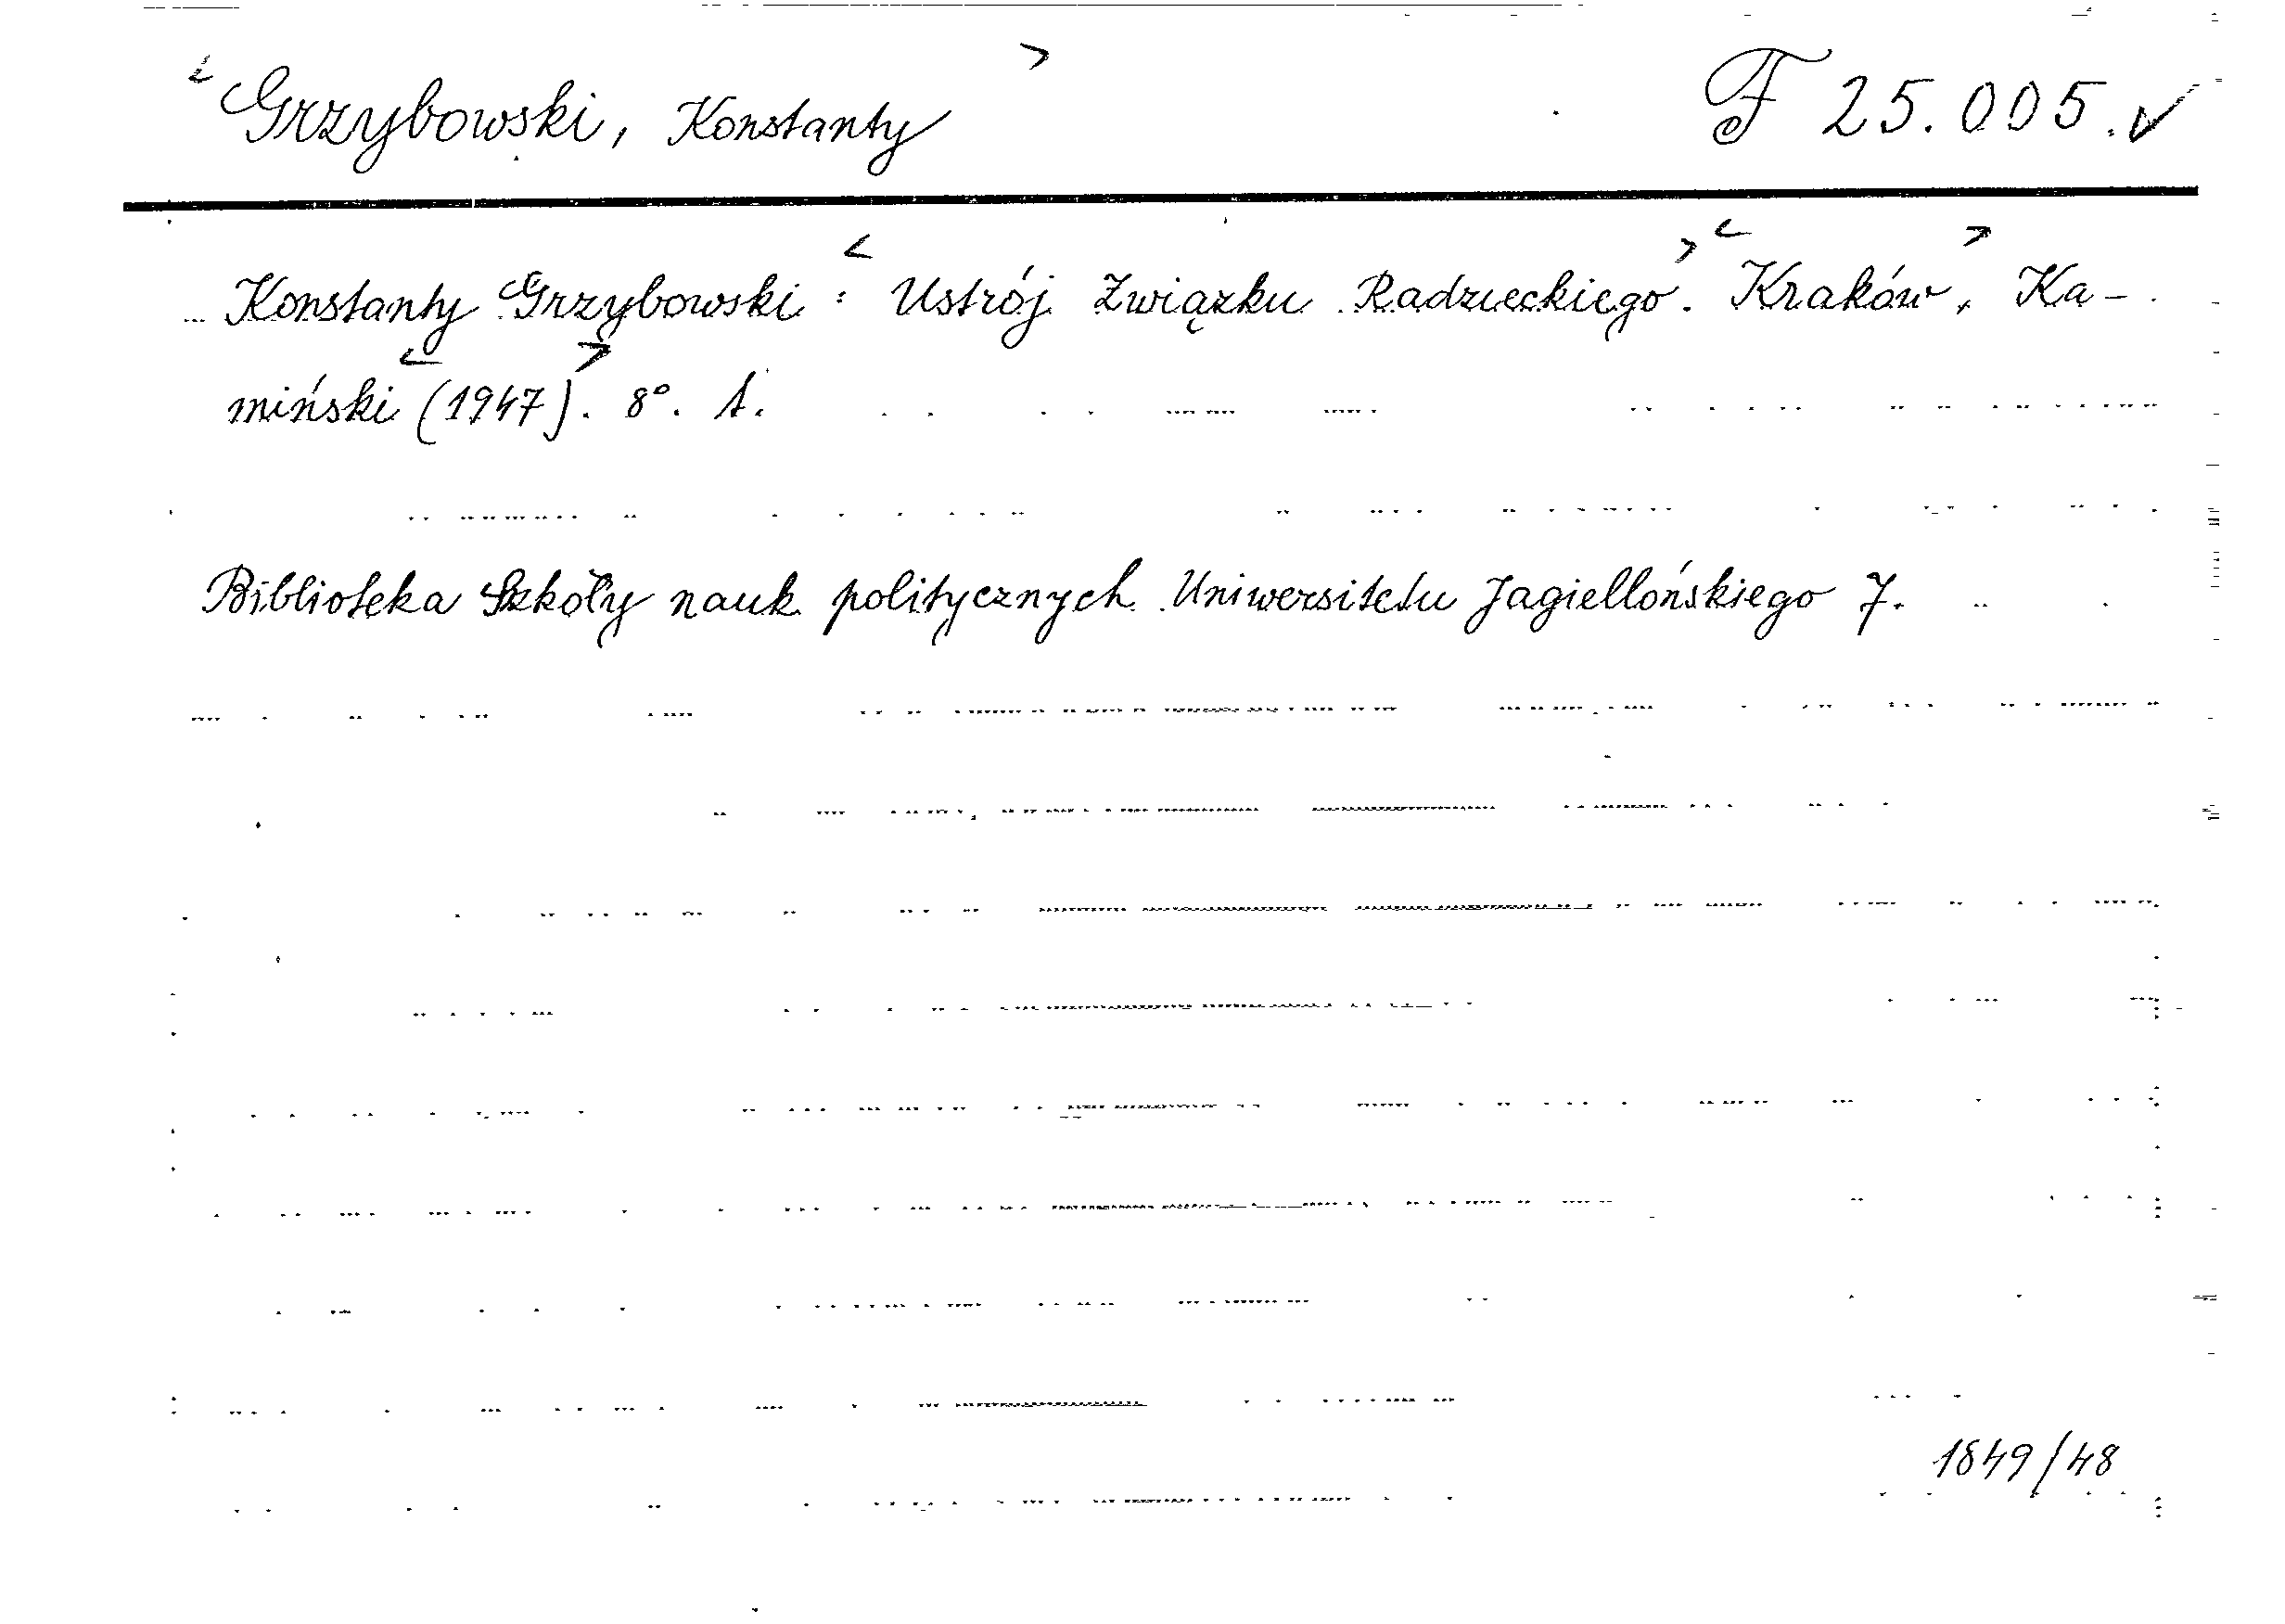 <Grzybowski, Konstanty> F 25.005. ✓
Konstanty Grzybowski: <Ustrój Związku Radzieckiego>. <Kraków>, Ka-
miński <(1947)>. 8°. 1.
Biblioteka Szkoły nauk politycznych Uniwersitetu Jagiellońskiego 7.
1849/48